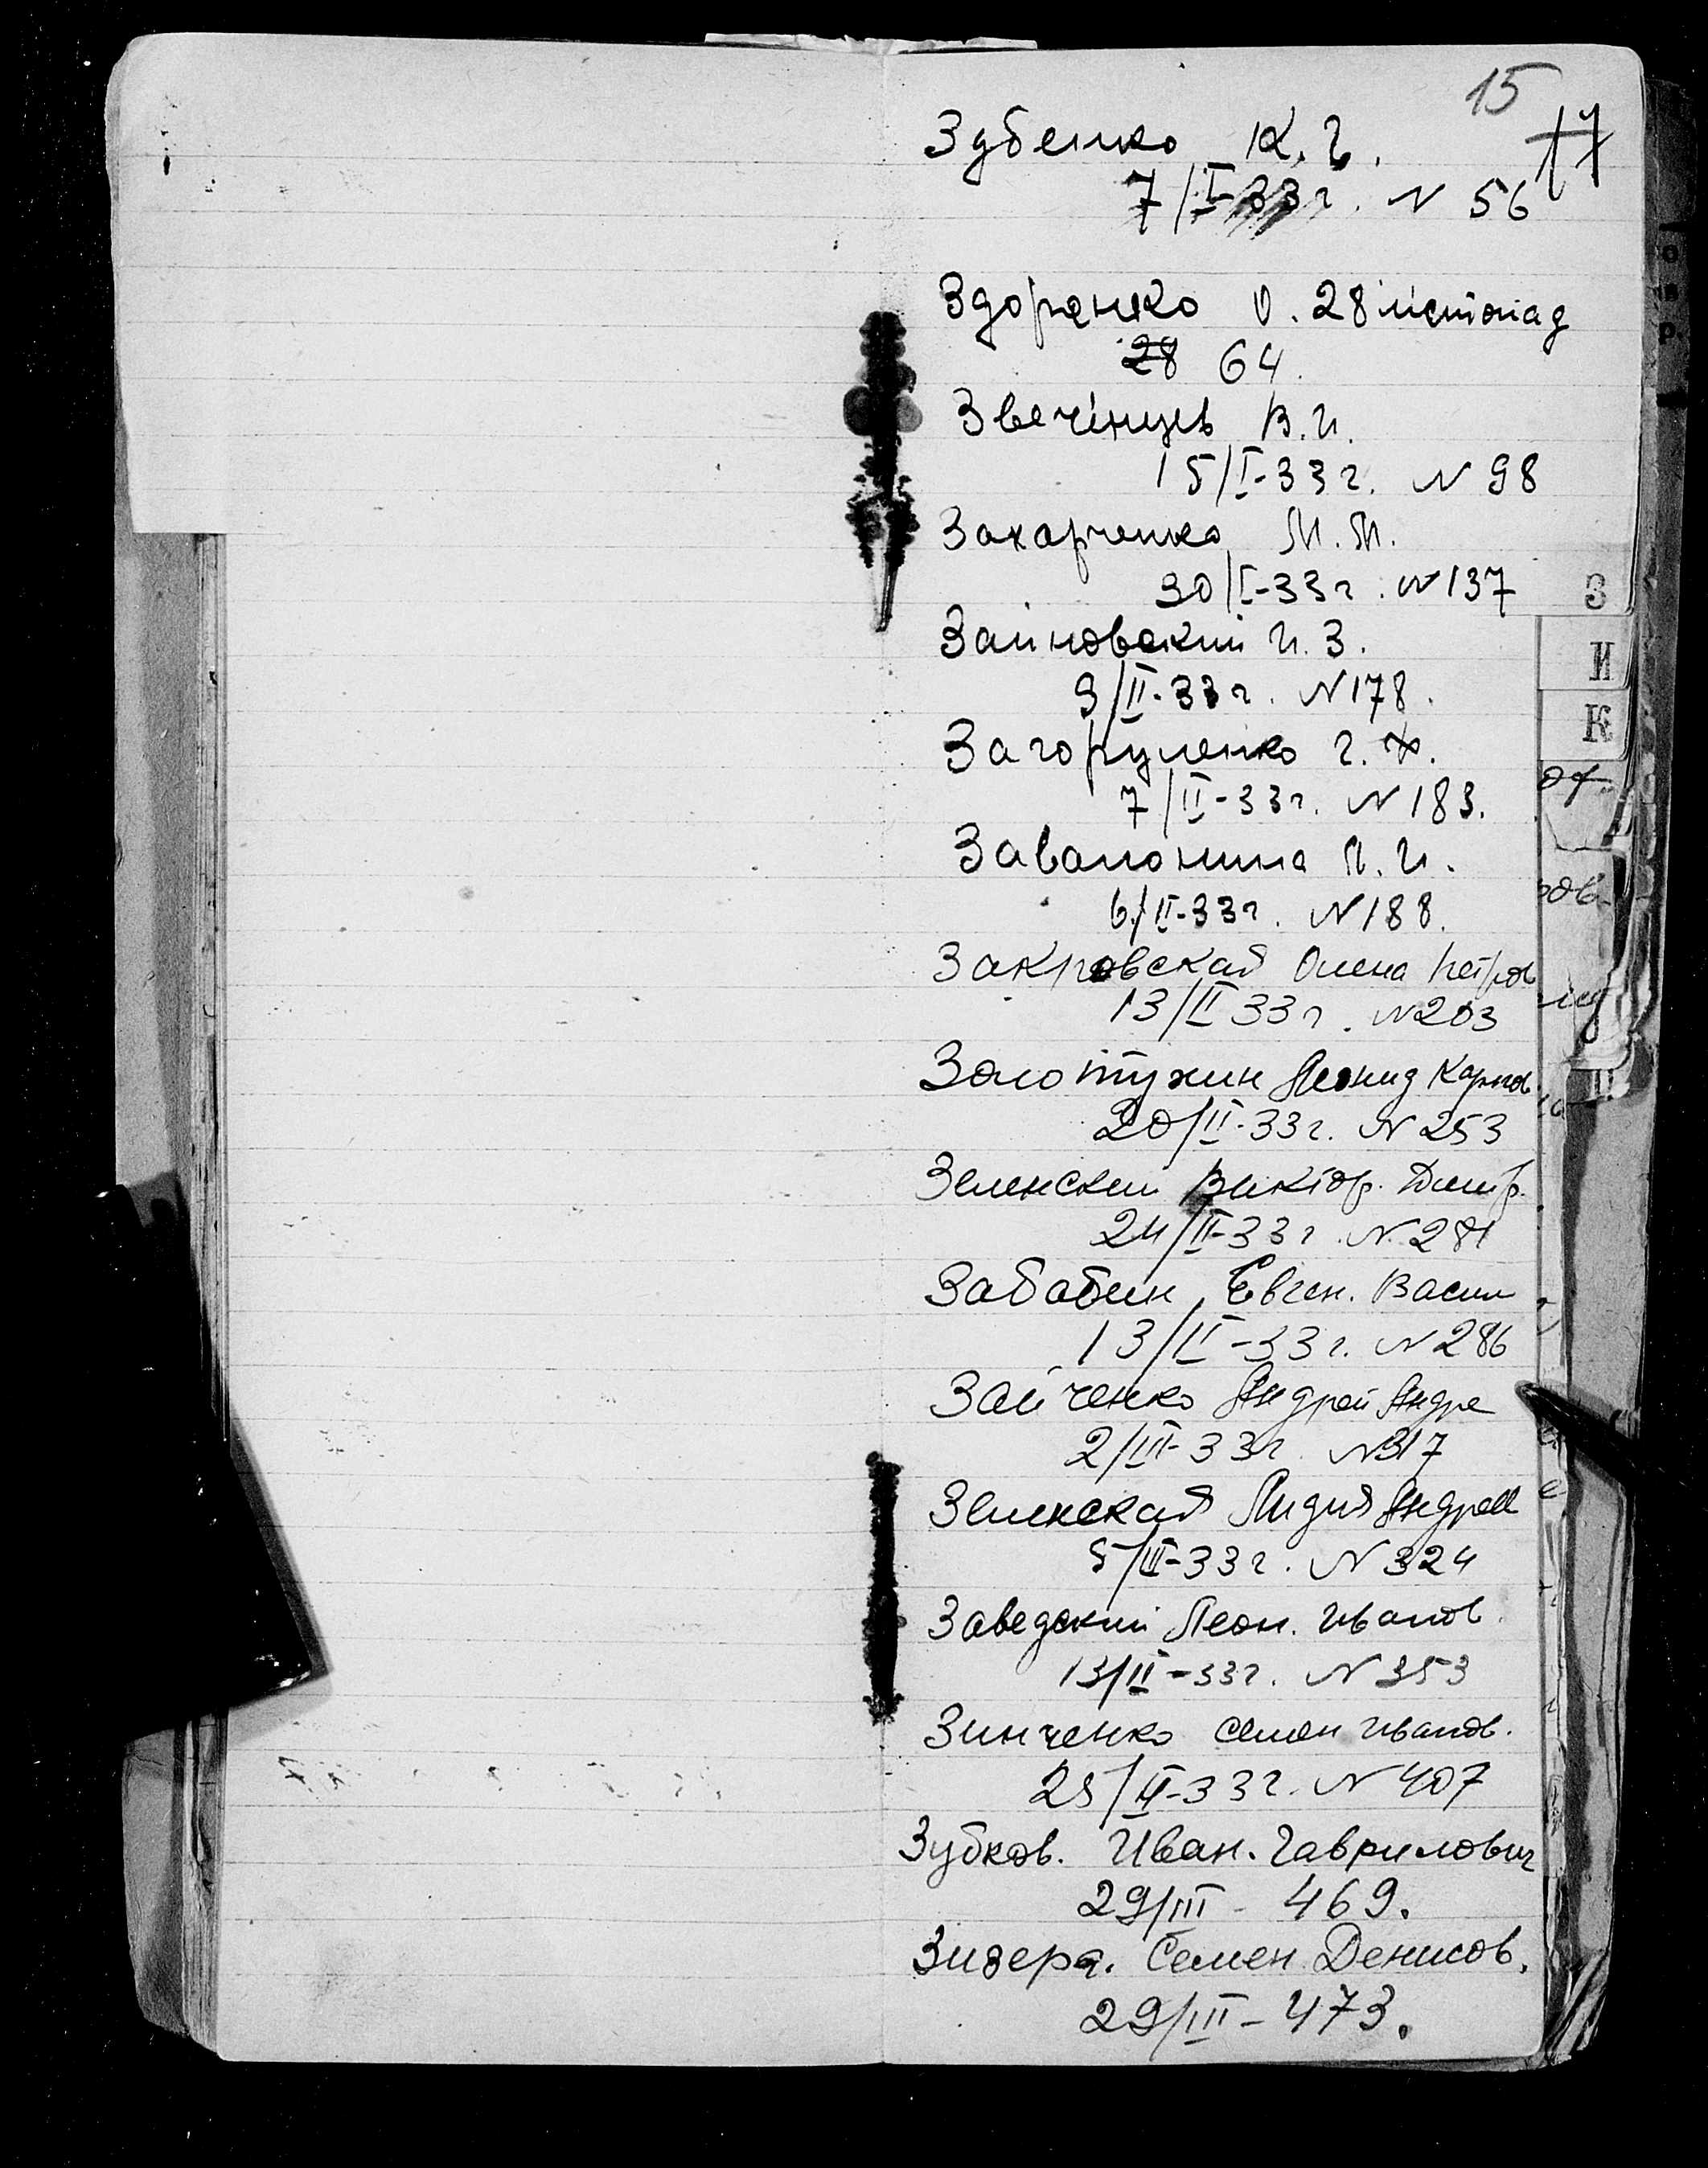 15
17
Здбенко К. Г.
7/I-33г. N 56
Здоренко О. 28 листопад
28 64.
Звечінцев В. И.
15/I-33г. N 98
Захарченко М. М.
30/I-33г. N 137
З
Зайновский И. З.
И
9/II-33г. N 178.
К
Загоруленко Г. Х.
7/II-33г. N 183.
Завалонина П. И.
6/II-33г. N 188.
Закровская Олена Петров
13/II 33г. N 203
Золотухин Леонид Карпов
20/II-33г. N 253
Зеленский Виктор. Дмитр.
24/II-33г. N 281
Забабин Евген. Васил
13/II-33г. N 286
Зайченко Андрей Андре
2/III-33г. N 317
Зелинская Лидия Андрее
5/III-33г. N 324
Заведский Леон. Иванов.
13/II-33г. N 353
Зинченко Семен Иванов.
25/II-33г. N 407
Зубков. Иван. Гаврилович
29/III - 469.
Зизера. Семен Денисов.
29/III - 473.